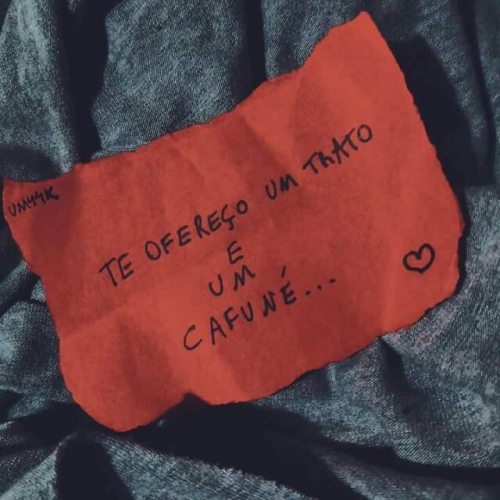 TE OFEREÇO UM TRATO
E
UM
CAFUNÉ...